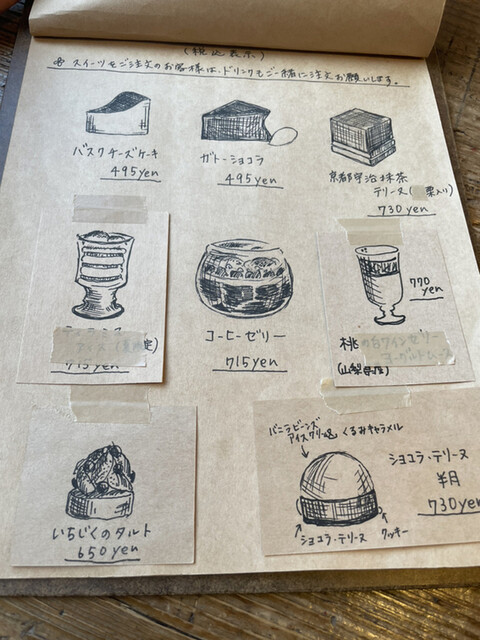 (税込表示)
※ スイーツをご注文のお客様は、ドリンクもご一緒に注文お願いします。
バスクチーズケーキ
495yen
ガトーショコラ
495yen
京都宇治抹茶
テリーヌ(栗入り)
730yen
715yen
コーヒーゼリー
715yen
770
yen
桃の白ワインゼリー
ヨーグルトムース
(山梨県産)
いちじくのタルト
650yen
バニラビーンズ
アイスクリーム
くるみキャラメル
ショコラ・テリーヌ
半月
730yen
ショコラ・テリーヌ
クッキー